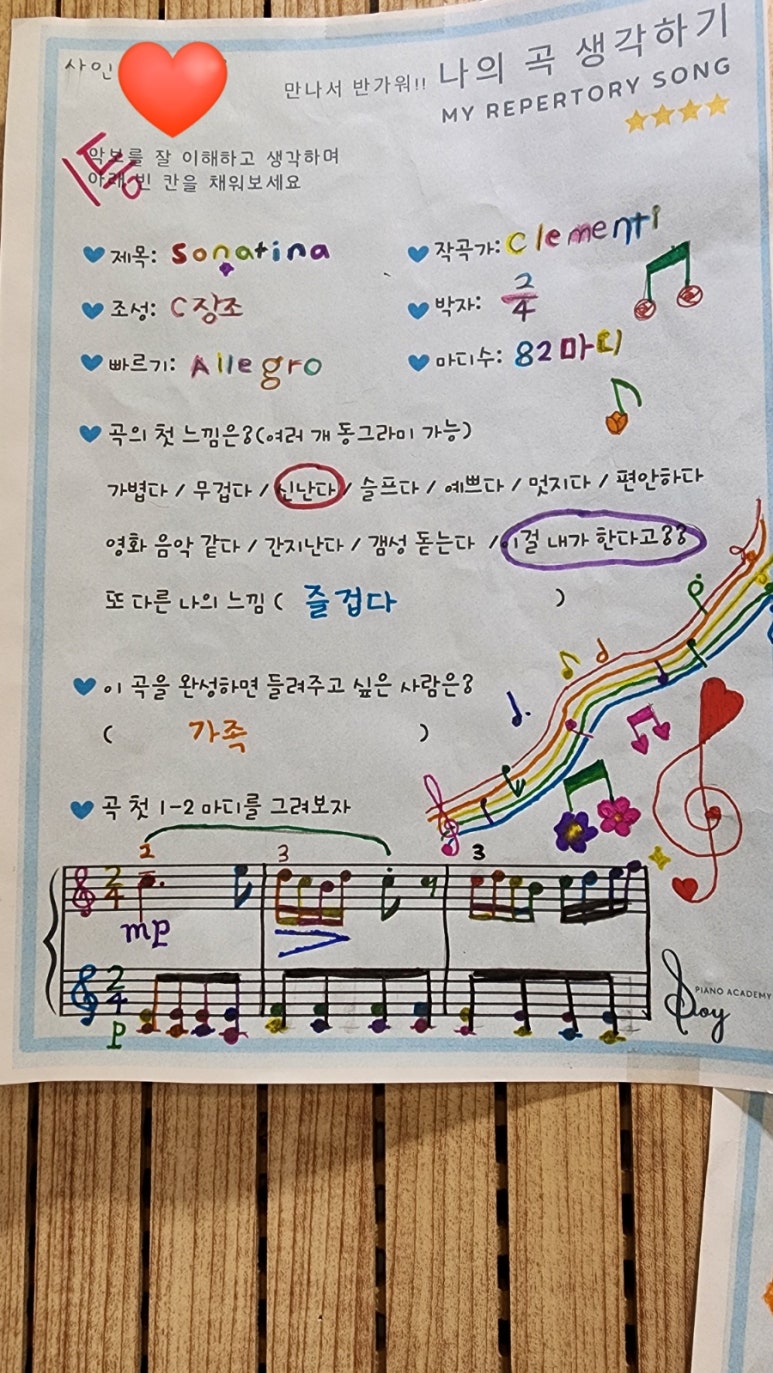 사인
만나서 반가워!! 나의 곡 생각하기
MY REPERTORY SONG
1등
악보를 잘 이해하고 생각하며
아래 빈 칸을 채워보세요
제목: Sonatina
작곡가: Clementi
조성: C장조
박자: 2/4
빠르기: Allegro
마디수: 82마디
곡의 첫 느낌은?(여러 개 동그라미 가능)
가볍다 / 무겁다 / 신난다 / 슬프다 / 예쁘다 / 멋지다 / 편안하다
영화 음악 같다 / 간지난다 / 갬성 돋는다 / 이걸 내가 한다고??
또 다른 나의 느낌 ( 즐겁다 )
이 곡을 완성하면 들려주고 싶은 사람은?
( 가족 )
곡 첫 1-2 마디를 그려보자
2 3 3
2/4
mp
2/4
P
PIANO ACADEMY
Joy